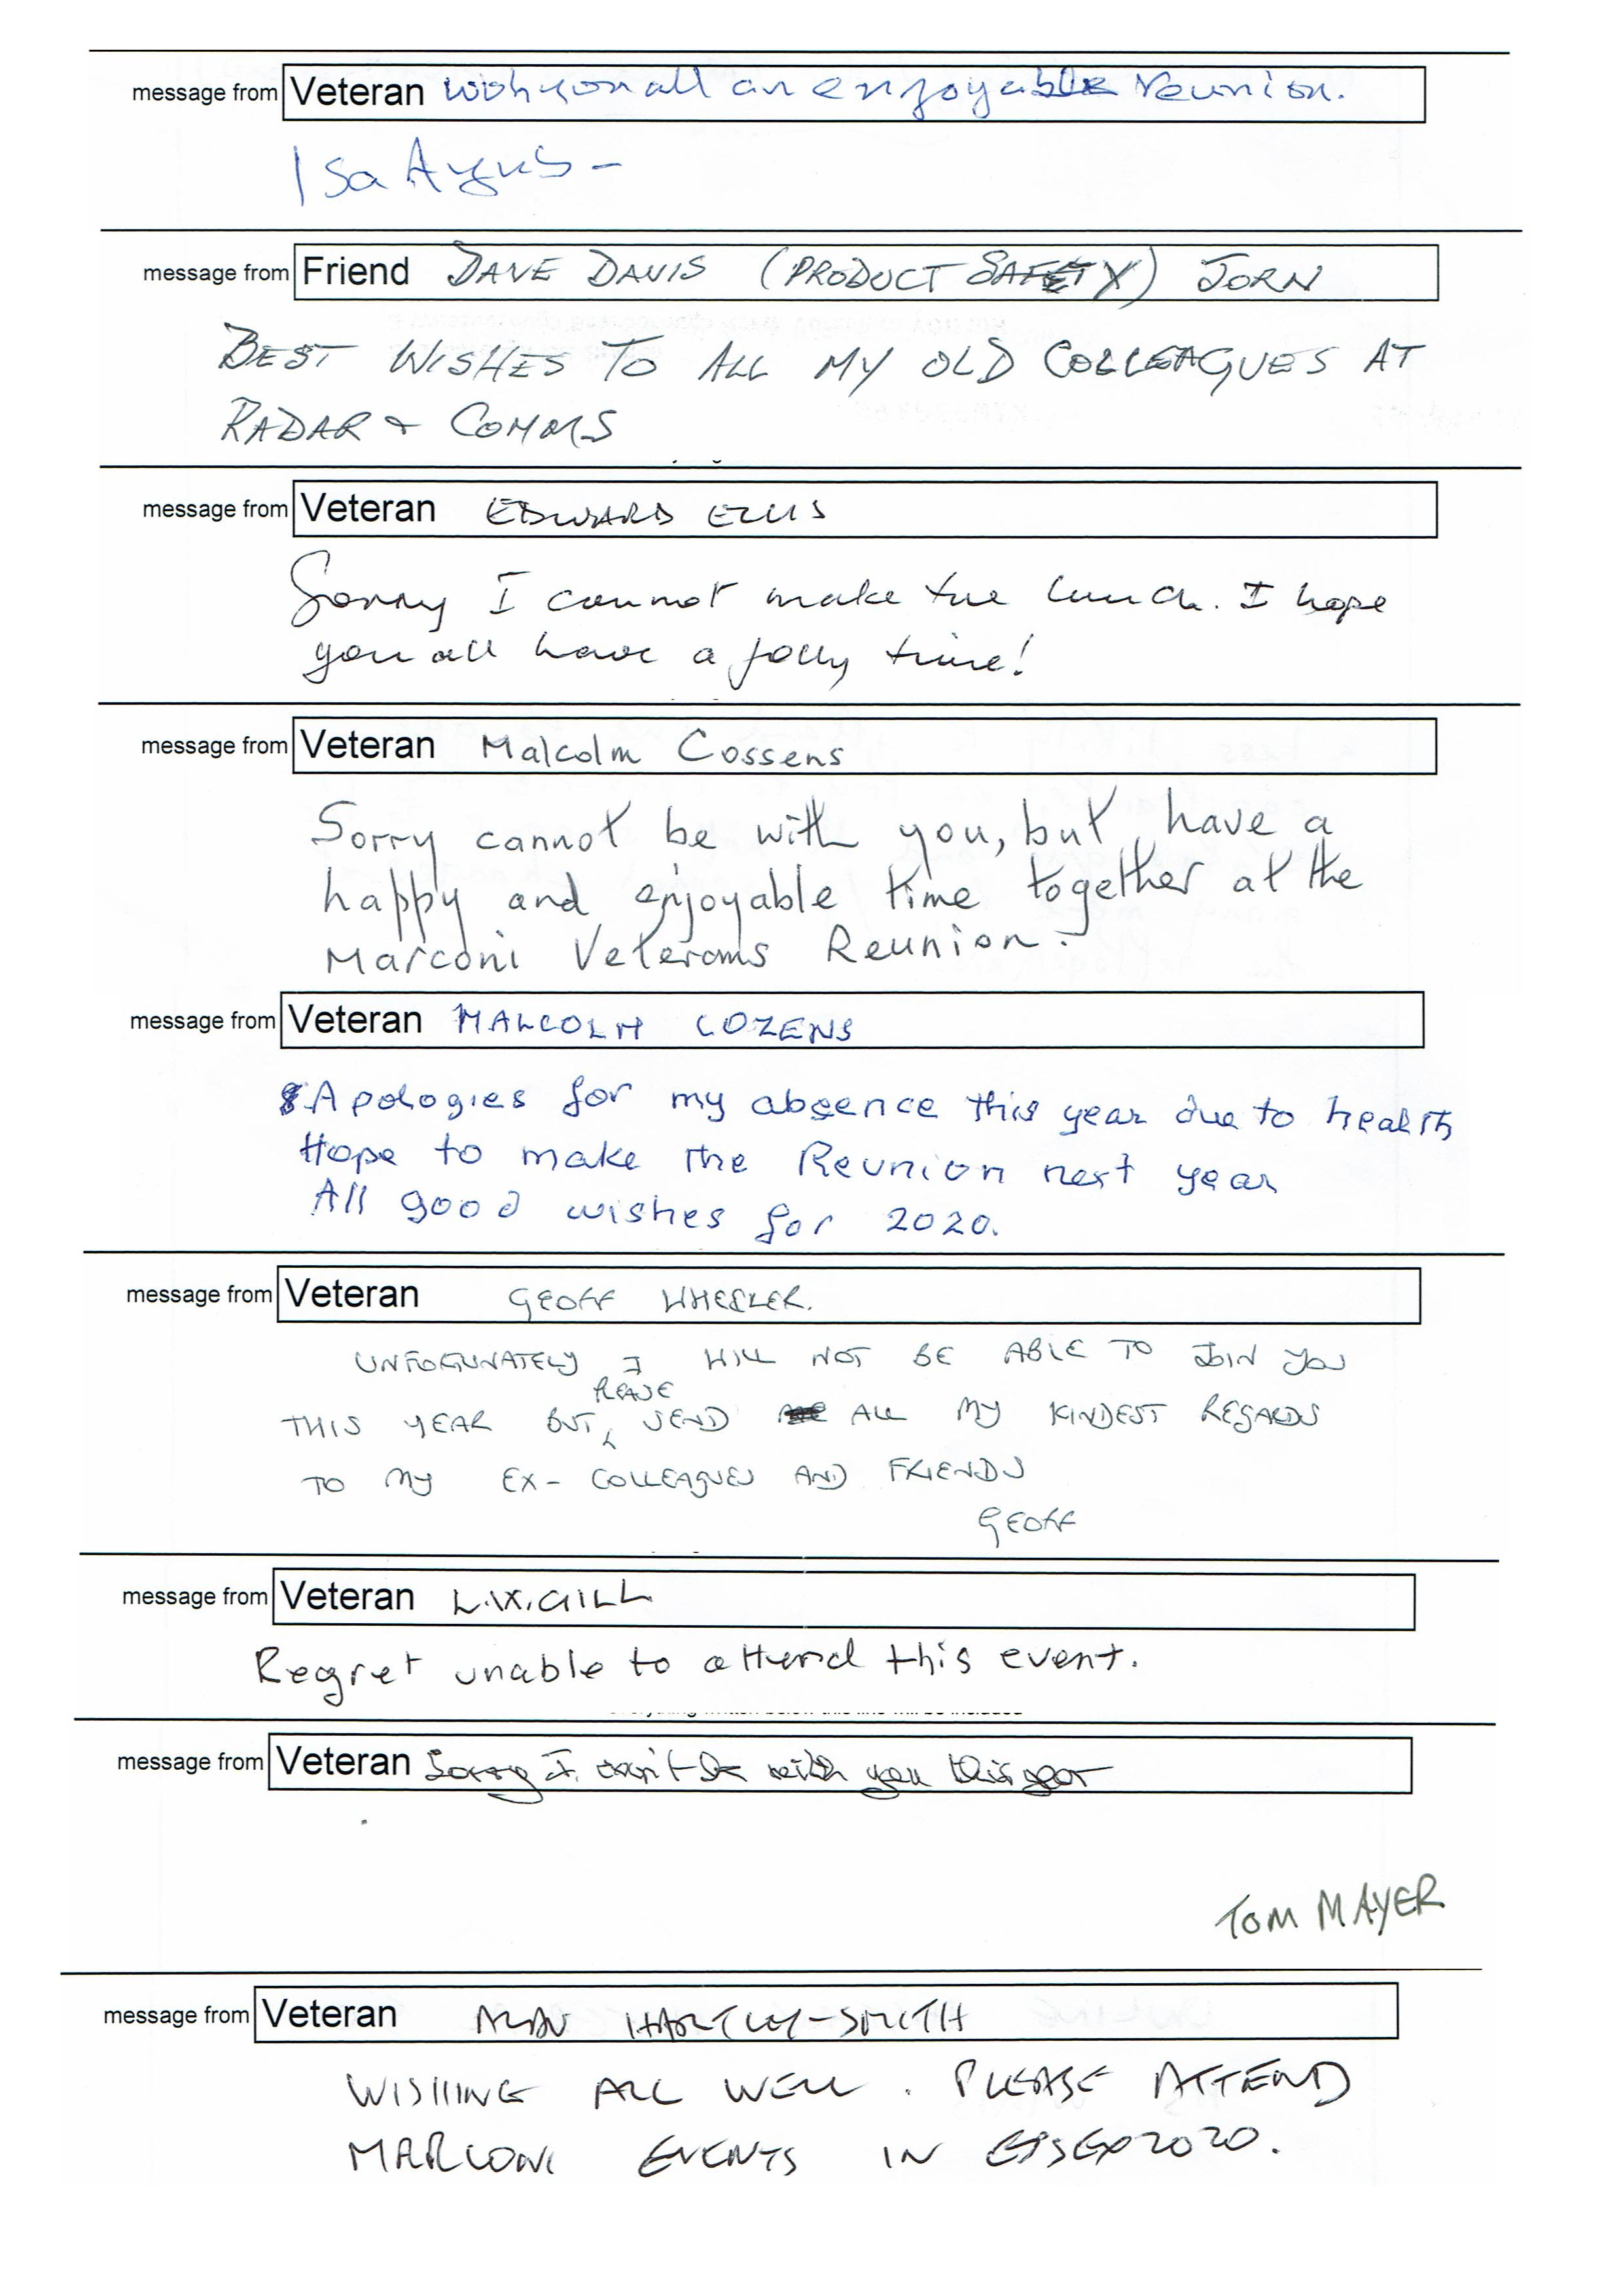 message from Veteran Wish you all an enjoyable reunion.
Isa
message from Friend DAVE DAVIS (PRODUCT SAFETY)
BEST WISHES TO ALL MY OLD COLLEAGUES AT
RADAR + COMMS
message from Veteran EDWARD ELLIS
Sorry I cannot make the lunch. I hope
you all have a jolly time!
message from Veteran Malcolm Cossens
Sorry cannot be with you, but have a
happy and enjoyable time together at the
Marconi Veterans Reunion.
message from Veteran MALCOLM COZENS
Apologies for my absence this year due to health
Hope to make the Reunion next year
All good wishes for 2020.
message from Veteran GEOFF WHEELER.
UNFORTUNATELY I WILL NOT BE ABLE TO JOIN YOU
PLEASE
THIS YEAR BUT SEND ALL MY KINDEST REGARDS
TO MY EX-COLLEAGUES AND FRIENDS
GEOFF
message from Veteran L.W.GILL
Regret unable to attend this event.
message from Veteran Sorry I can't be with you this year
TOM MAYER
message from Veteran ALAN HARTLEY-SMITH
WISHING ALL WELL. PLEASE ATTEND
MARCONI EVENTS IN ESSEX2020.